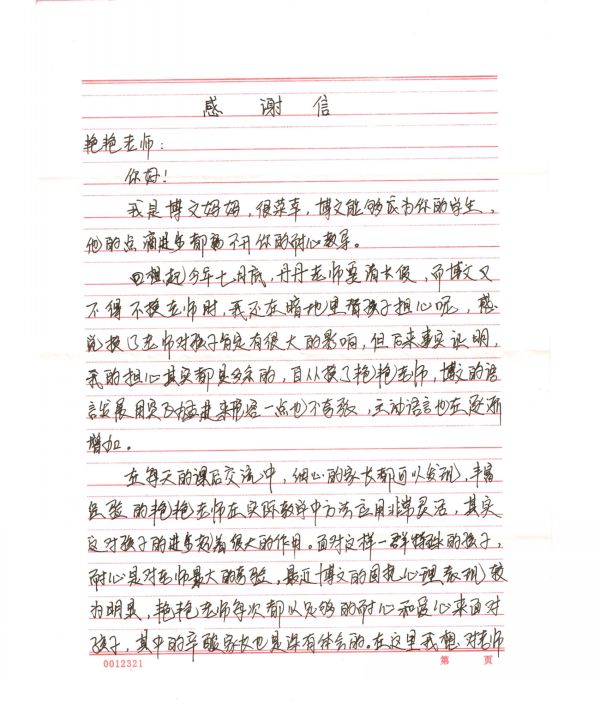 感 谢 信
艳艳老师：
你好！
我是博文妈妈，很荣幸，博文能够成为你的学生，
他的点滴进步都离不开你的耐心教导。
回想起今年七月底，丹丹老师要请长假，而博文又
不得不换老师时，我还在暗地里替孩子担心呢，总
觉换了老师对孩子肯定有很大的影响，但后来事实证明，
我的担心其实都是多余的，自从换了艳艳老师，博文的语
言发展用突飞猛进来形容一点也不夸张，主动语言也在逐渐
增加。
在每天的课后交流中，细心的家长都可以发现，丰富
经验的艳艳老师在实际教学中方法应用非常灵活，其实
这对孩子的进步起着很大的作用。面对这样一群特殊的孩子，
耐心是对老师最大的考验，最近博文的固执心理表现较
为明显，艳艳老师每次都以足够的耐心和爱心来面对
孩子，其中的辛酸家长也是深有体会的。在这里我想对老师
0012321 第 页